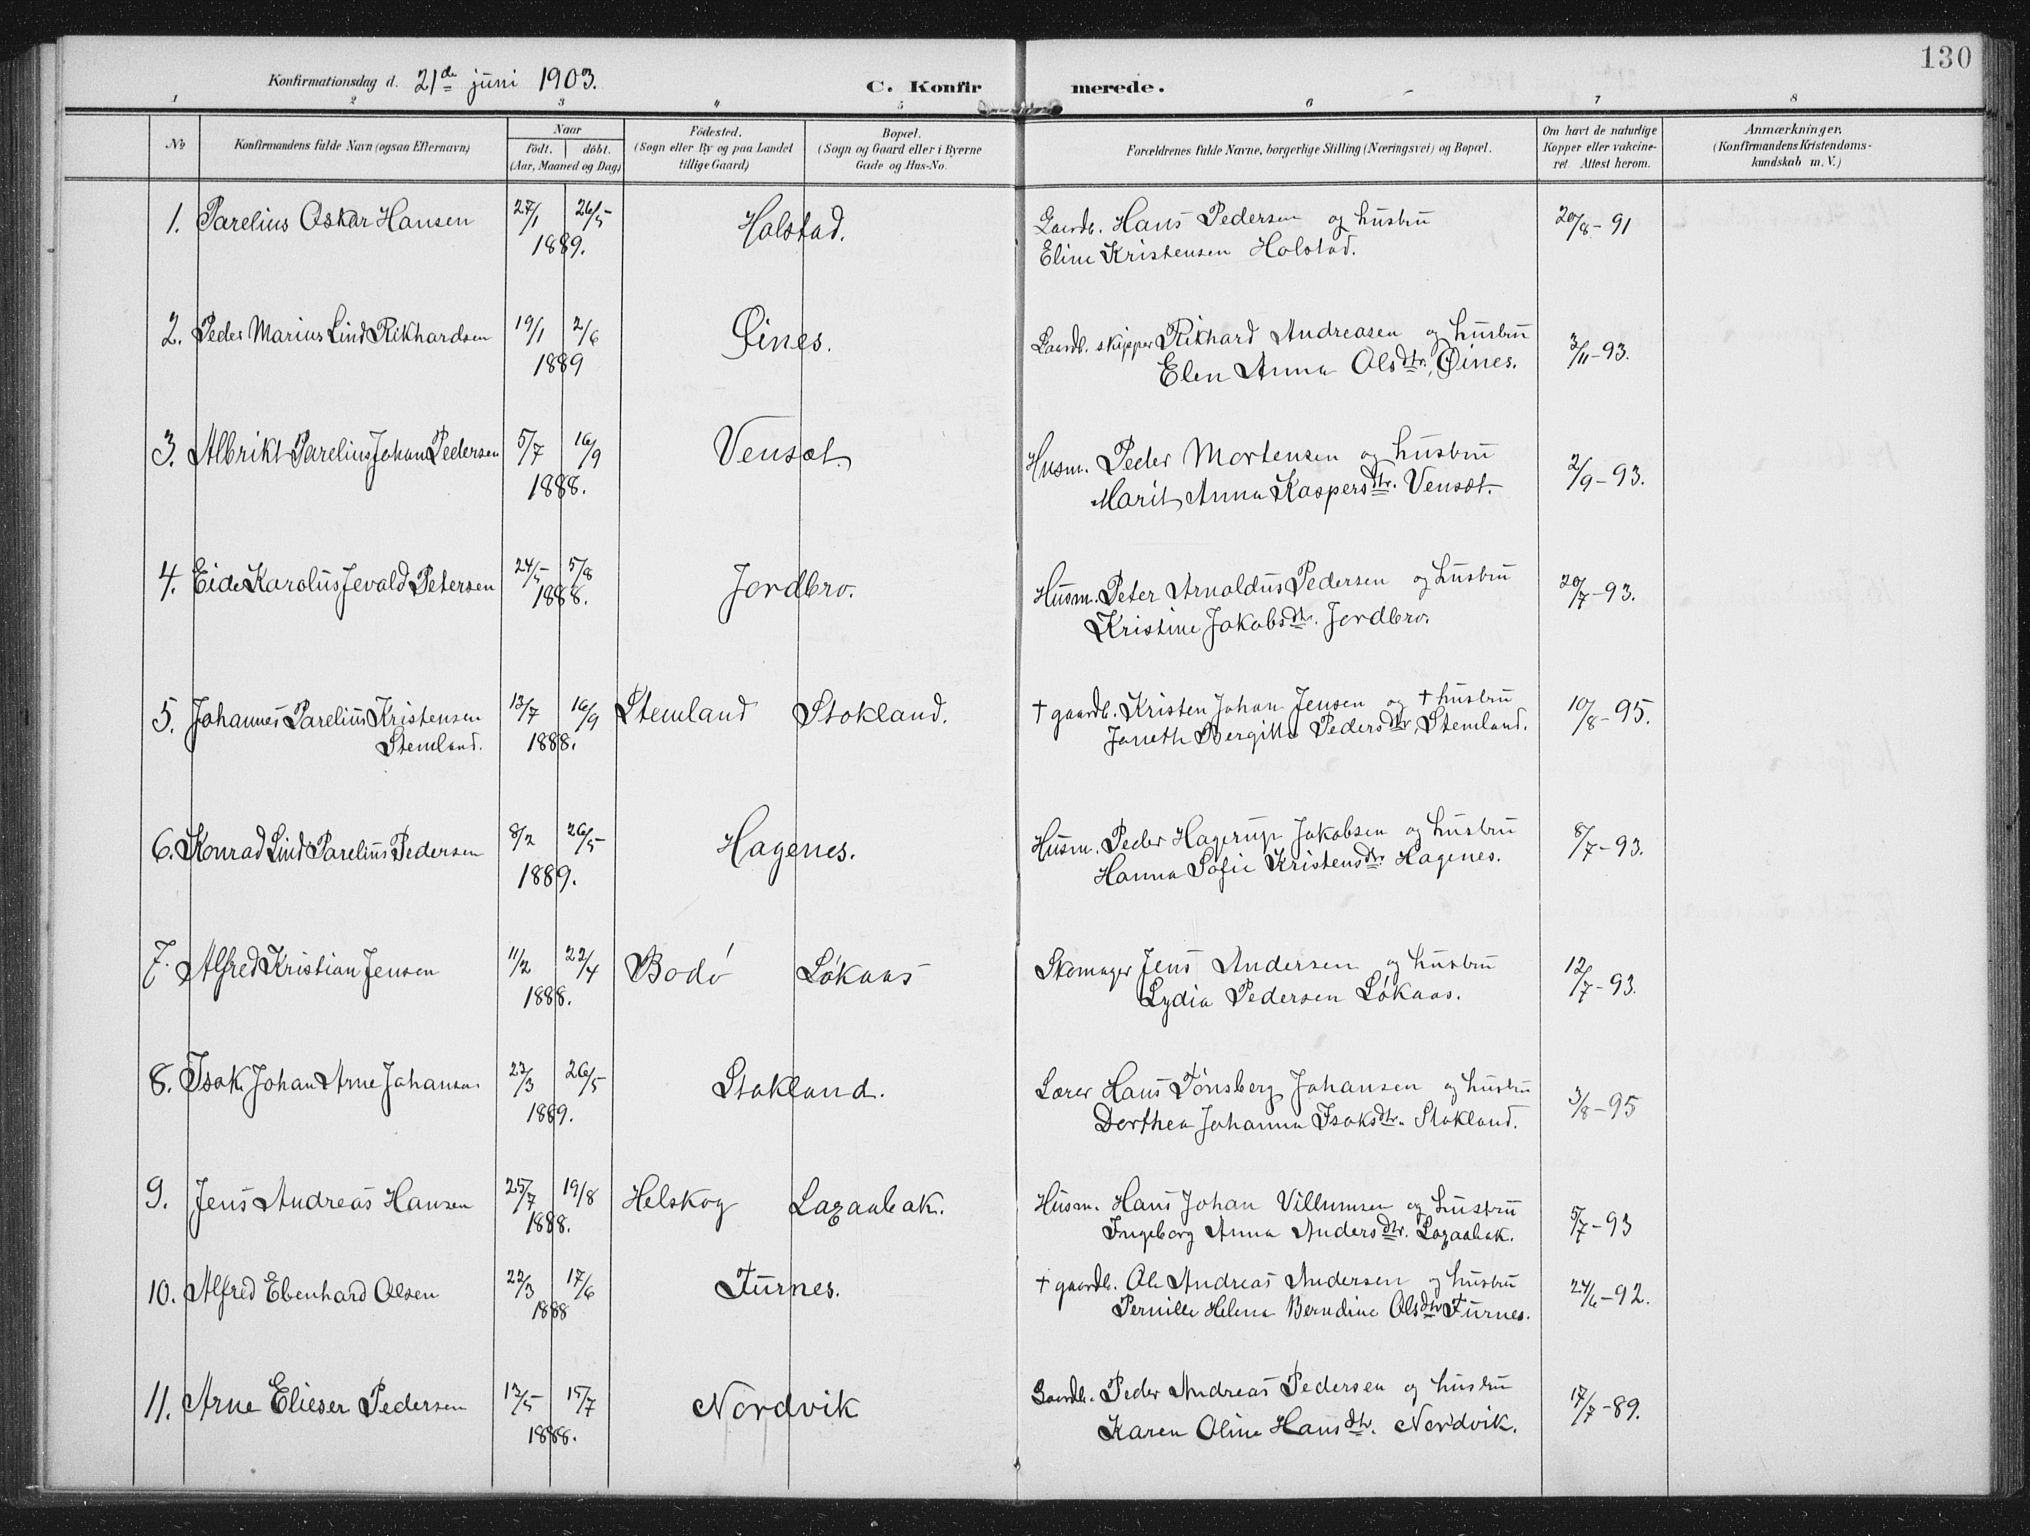 130
Konfirmationsdag d. 21de juni 1903.
C. Konfirmerede.
1 2 3 4 5 6 7 8
No
Konfirmandens fulde Navn (ogsaa Efternavn)
Naar
født. døbt.
(Aar, Maaned og Dag)
Fødested.
(Sogn eller By og paa Landet
tillige Gaard)
Bopæl.
(Sogn og Gaard eller i Byerne
Gade og Hus-No.
Forældrenes fulde Navne, borgerlige Stilling (Næringsvei) og Bopæl.
Om havt de naturlige
Kopper eller vakcine-
ret Attest herom.
Anmærkninger.
(Konfirmandens Kristendoms-
kundskab m. V.)
1. Parelius Oskar Hansen 27/1 26/5 Holstad. Gaardb. Hans Pedersen og hustru 20/8-91
1889. Eline Kristensen Holstad.
2. Peder Marius Lind Rikhardsen 19/1 2/6 Øines. Gaardb. skipper Rikhard Andreasen og hustru 3/11-93.
1889 Elen Anna Olsdtr. Øines.
3. Albrikt Parelius Johan Pedersen 5/7 16/9 Vensæt. Husm. Peder Mortensen og hustru 2/9-93.
1888. Marit Anna Kaspersdtr. Vensæt.
4. Eide Karolus Jevald Petersen 24/5 5/8 Jordbro. Husm. Peter Arnoldus Pedersen og hustru 20/7-93.
1888. Kristine Jakobsdtr. Jordbro.
5. Johannes Parelius Kristensen 13/7 16/9 Stemland Stokland. † gaardb. Kristen Johan Jensen og † hustru 10/8-95.
Stemland. 1888. Janeth Bergitte Pedersdtr. Stemland.
6. Konrad Lind Parelius Pedersen 8/2 26/5 Hagenes. Husm. Peder Hagerup Jakobsen og hustru 8/7-93.
1889. Hanna Sofie Kristensdtr. Hagenes.
7. Alfred Kristian Jensen 11/2 22/4 Bodø Løkaas Skomager Jens Andersen og hustru 12/7-93.
1888. Lydia Pedersen Løkaas.
8. Isak Johan Arne Johansen 23/3 26/5 Stokland. Lærer Hans Tønsberg Johansen og hustru 3/8-95
1889. Dorthea Johanna Isaksdtr. Stokland.
9. Jens Andreas Hansen 25/7 19/8 Helskog Laxaabak. Husm. Hans Johan Villumsen og hustru 5/7-93
1888. Ingeborg Anna Andersdtr. Laxaabak.
10. Alfred Ebenhard Olsen 22/3 17/6 Furnes. † gaardb. Ole Andreas Andersen og hustru 24/6-92.
1888 Pernille Helena Berndine Olsdtr. Furnes.
11. Arne Elieser Pedersen 13/5 15/7 Nordvik Gaardb. Peder Andreas Pedersen og hustru 17/7-89.
1888. Karen Oline Hansdtr. Nordvik.